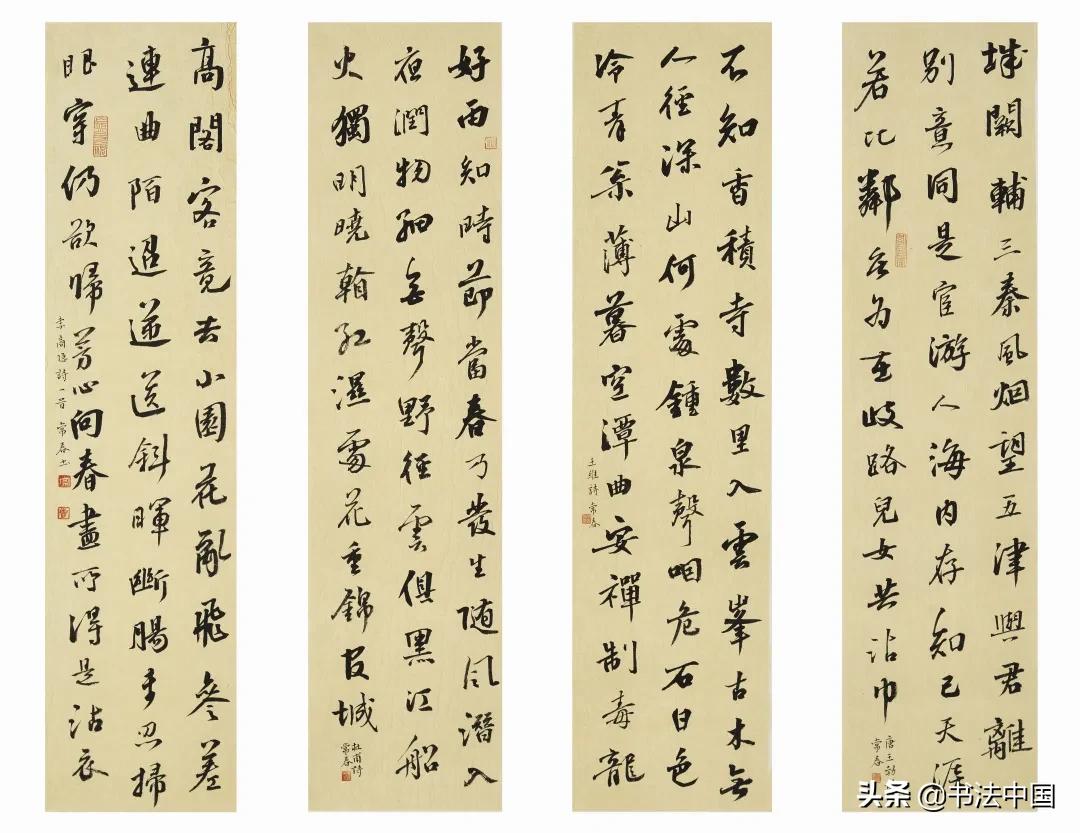 城闕輔三秦風烟望五津與君離
别意同是宦游人海内存知己天涯
若比鄰無為在歧路兒女共沾巾
唐王勃
常春
不知香積寺數里入雲峯古木無
人徑深山何處鍾泉聲咽危石日色
冷青松薄暮空潭曲安禪制毒龍
王維詩常春
好雨知時節當春乃發生随風潛入
夜潤物細無聲野徑雲俱黑江船
火獨明曉看紅濕處花重錦官城
杜甫詩
常春
高閣客竟去小園花亂飛參差
連曲陌迢遞送斜暉斷腸未忍掃
眼穿仍欲歸芳心向春盡所得是沾衣
李商隱詩一首常春书
头条 @书法中国